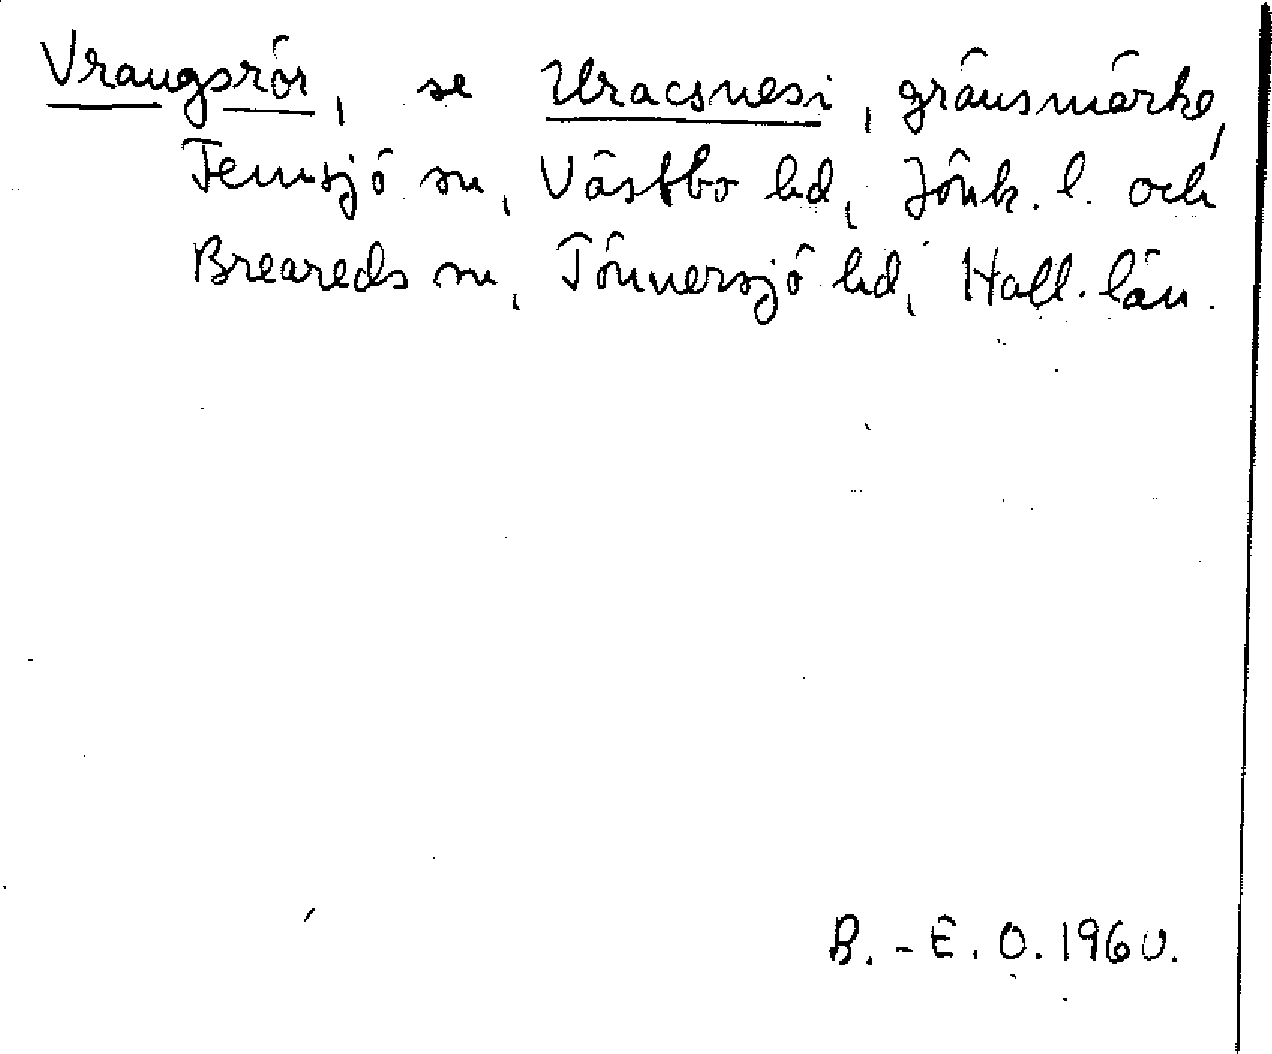 Vrangsrör, se Uracsnesi, gränsmärke,
Femsjö sn, Västbo hd, Jönk. l. och
Breareds sn, Tönnersjö hd, Hall. län.
B.-E. O. 1960.